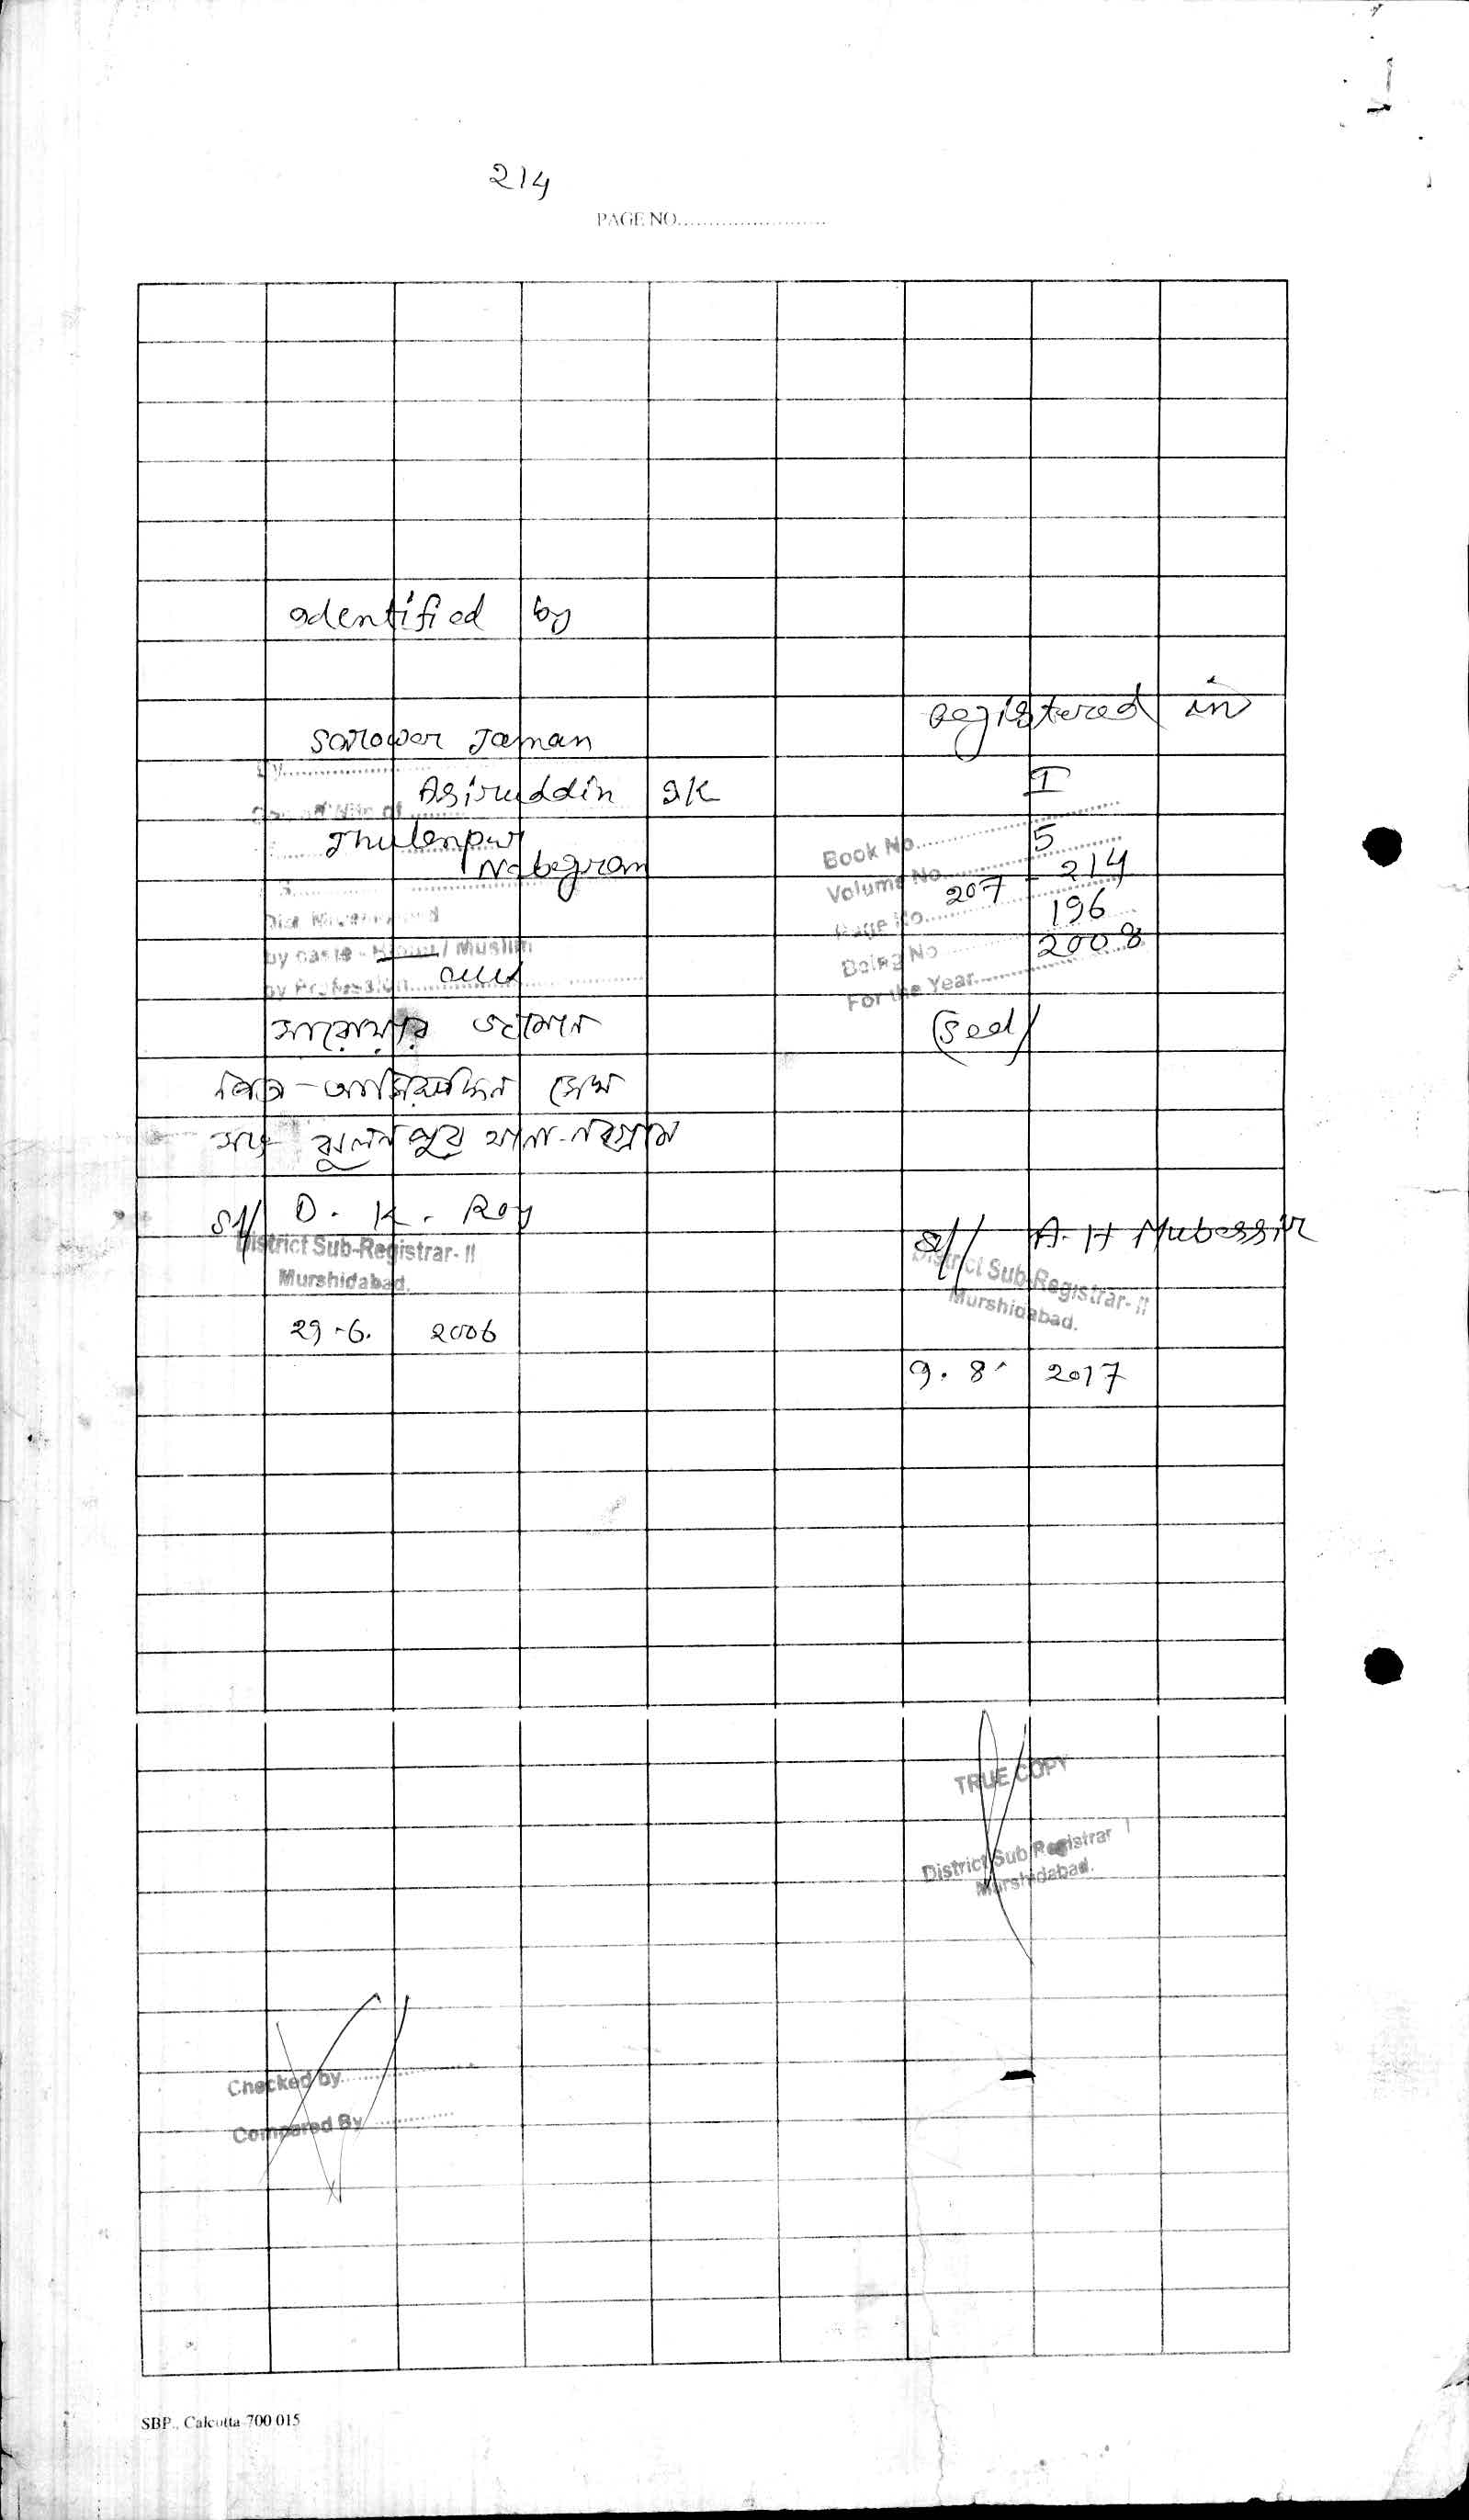 214
PAGE NO.
Identified by
Sarowar Jaman
Asiruddin SK
Jhulenpur
Nabagram
by caste - Hindu / Muslim
by Profession
সারোয়ার জামান
পিতা - আসিরুদ্দিন সেখ
সাং ঝুলনপুর থানা - নবগ্রাম
Sd/ D. K. Roy
District Sub-Registrar- II
Murshidabad.
29-6. 2006
Registered in
Book No. I
Volume No. 5
Page No. 207 - 214
Being No 196
For the Year. 2008
(Seal)
Sd/ A. H Mubassir
District Sub-Registrar- II
Murshidabad.
9. 8. 2017
TRUE COPY
District Sub Registrar
Murshidabad.
Checked by
Compared By
SBP., Calcutta-700 015